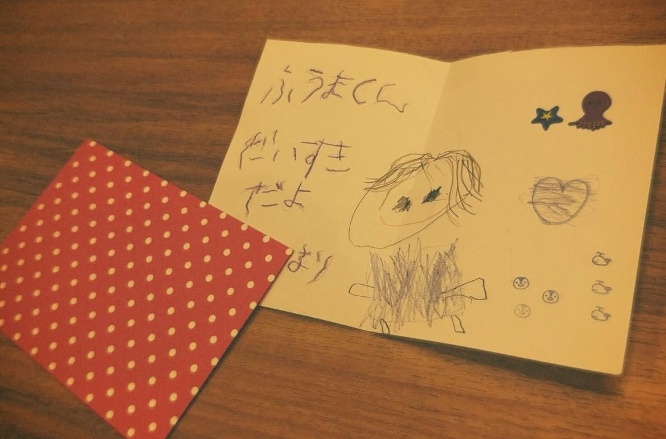 ふうまくん
だいすき
だよ
より